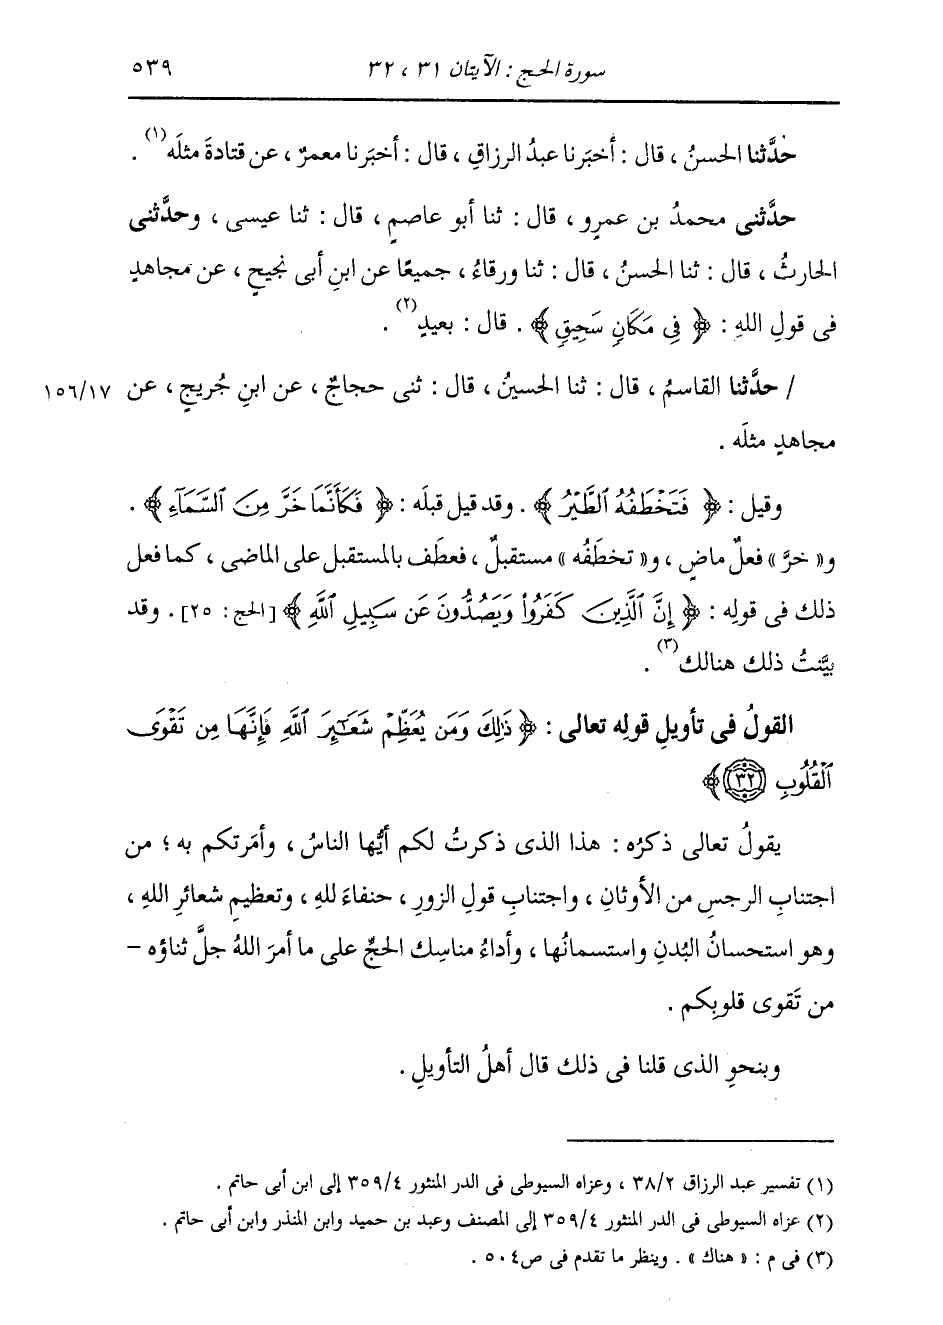 سورة الحج : الآيتان ٣١ ، ٣٢ ٥٣٩
حدَّثنا الحسنُ ، قال : أخبَرنا عبدُ الرزاقِ ، قال : أخبَرنا معمرٌ ، عن قتادةَ مثلَه(١) .
حدَّثنى محمدُ بن عمرٍو ، قال : ثنا أبو عاصمٍ ، قال : ثنا عيسى ، وحدَّثنى
الحارثُ ، قال : ثنا الحسنُ ، قال : ثنا ورقاءُ ، جميعًا عن ابنِ أبى نجيحٍ ، عن مجاهدٍ
فى قولِ اللهِ : ﴿ فِي مَكَانٍ سَحِيقٍ ﴾ . قال : بعيدٍ(٢) .
/ حدَّثنا القاسمُ ، قال : ثنا الحسينُ ، قال : ثنى حجاجٌ ، عن ابنِ جُريجٍ ، عن ١٥٦/١٧
مجاهدٍ مثلَه .
وقيل : ﴿ فَتَخْطَفُهُ الطَّيْرُ ﴾ . وقد قيل قبلَه : ﴿ فَكَأَنَّمَا خَرَّ مِنَ السَّمَآءِ ﴾ .
و« خرَّ » فعلٌ ماضٍ ، و« تخطَفُه » مستقبلٌ ، فعطَف بالمستقبل على الماضى ، كما فعل
ذلك فى قولِه : ﴿ إِنَّ الَّذِينَ كَفَرُوا۟ وَيَصُدُّونَ عَن سَبِيلِ اللَّهِ ﴾ [الحج : ٢٥] . وقد
بيَّنتُ ذلك هنالك(٣) .
القولُ فى تأويلِ قولِه تعالى : ﴿ ذَٰلِكَ وَمَن يُعَظِّمْ شَعَٰٓئِرَ اللَّهِ فَإِنَّهَا مِن تَقْوَى
الْقُلُوبِ ٣٢ ﴾
يقولُ تعالى ذكرُه : هذا الذى ذكرتُ لكم أيُّها الناسُ ، وأمَرتكم به ؛ من
اجتنابِ الرجسِ من الأوثانِ ، واجتنابِ قولِ الزورِ ، حنفاءَ للهِ ، وتعظيمِ شعائرِ اللهِ ،
وهو استحسانُ البُدنِ واستسمانُها ، وأداءُ مناسِك الحجِّ على ما أمَر اللهُ جلَّ ثناؤه –
من تَقوى قلوبِكم .
وبنحوِ الذى قلنا فى ذلك قال أهلُ التأويلِ .
(١) تفسير عبد الرزاق ٣٨/٢ ، وعزاه السيوطى فى الدر المنثور ٣٥٩/٤ إلى ابن أبى حاتم .
(٢) عزاه السيوطى فى الدر المنثور ٣٥٩/٤ إلى المصنف وعبد بن حميد وابن المنذر وابن أبى حاتم .
(٣) فى م : « هناك » . وينظر ما تقدم فى ص٥٠٤ .